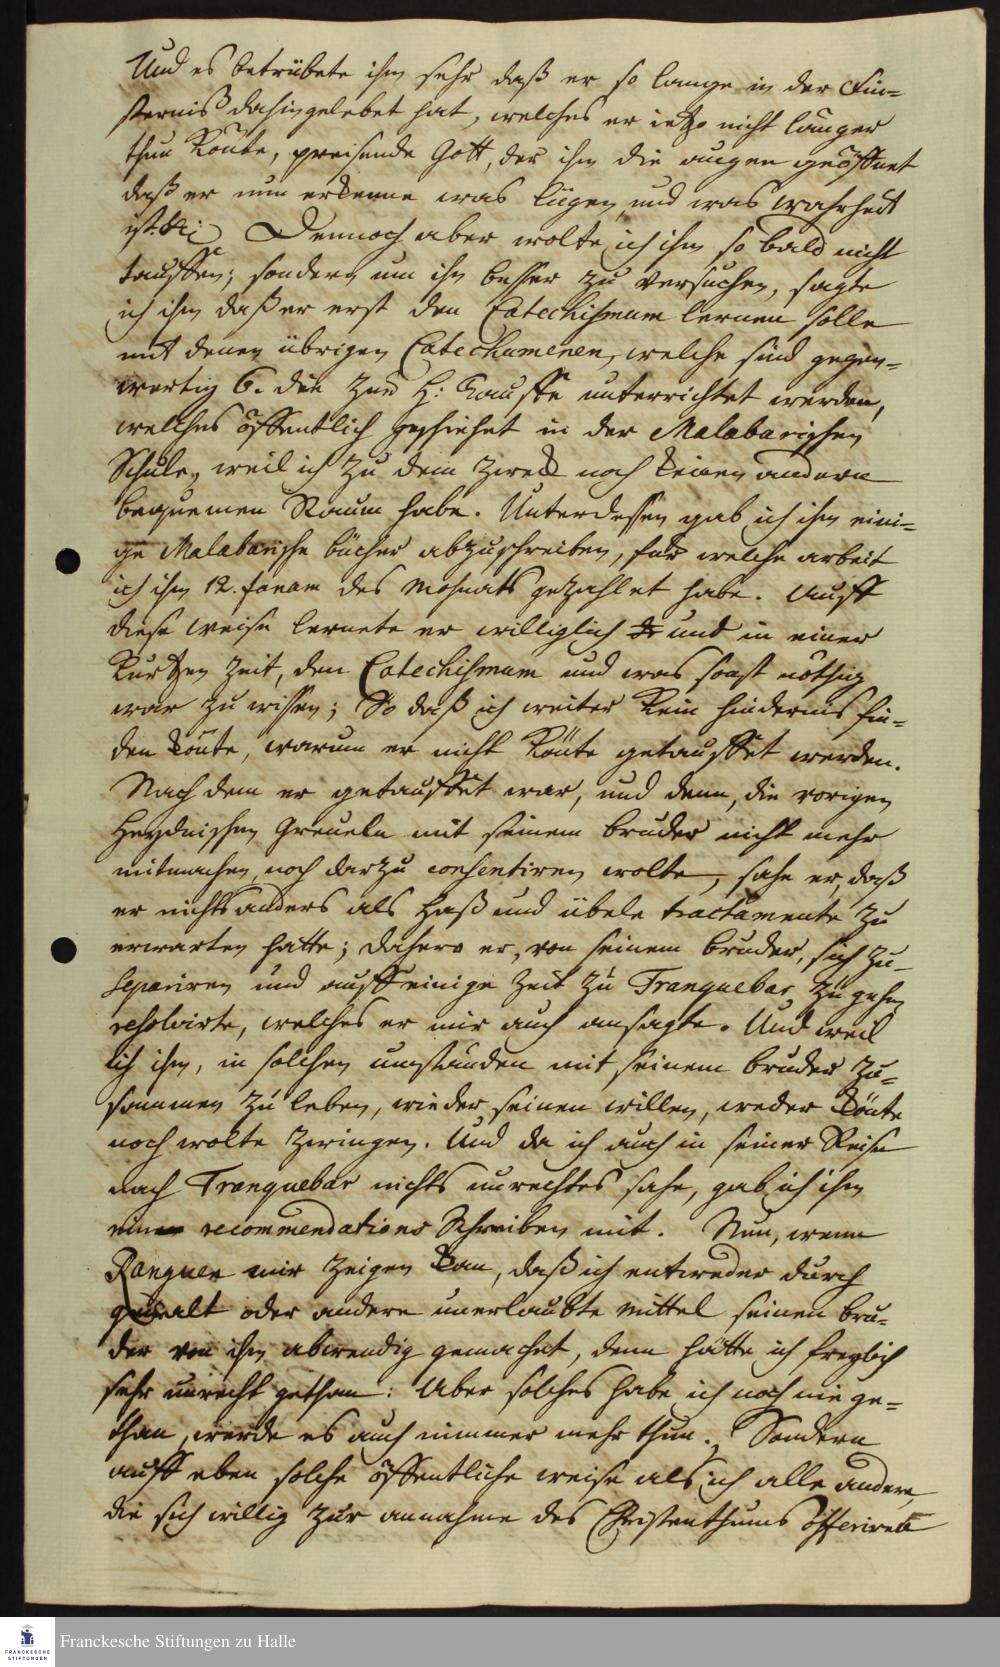 Und es betrübete ihn sehr daß er so lange in der Fin=
sterniß dahingelebet hat, welches er ietzo nicht länger
thun könte, preisende Gott, der ihm die augen geöffnet
daß er nun erkenne was lügen und was wahrheit
ist. &c: Dennoch aber wolte ich ihn so bald nicht
tauffen; sondern um ihn besser zu versuchen, sagte
ich ihm daß er erst den Catechismum lernen solle
mit denen übrigen Catechumenen, welche sind gegen=
wertig 6. die zur H: Tauffe unterrichtet werden,
welches öffentlich geschiehet in der Malabarischen
Schule, weil ich zu dem zweck noch keinen andern
bequemen Raum habe. Unterdessen gab ich ihm eini=
ge Malabarische bücher abzuschreiben, für welche arbeit
ich ihm 12. fanam des Mohnats gezahlet habe. Auff
diese weise lernete er williglich und in einer
kurtzen Zeit, den Catechismum und was sonst nöthig
war zu wissen; So daß ich weiter kein hinderniß fin=
den könte, warum er nicht könte getauffet werden.
Nach dem er getauffet war, und denn, die vorigen
Heydnischen Greueln mit seinem bruder nicht mehr
mitmachen, noch darzu consentiren wolte, sahe er, daß
er nichts anders als Haß und übele tractamente zu
erwarten hatte; dahero er, von seinem bruder, sich zu
separiren und auff einige Zeit zu Tranquebar zu gehen
resolvirte, welches er mir auch ansagte. Und weil
ich ihn, in solchen umständen mit seinem bruder zu=
sammen zu leben, wieder seinen willen, weder könte
noch wolte zwingen. Und da ich auch in seiner Reise
nach Tranquebar nichts unrechtes sahe, gab ich ihm
ein recommendations Schreiben mit. Nun, wenn
Ranguen mir zeigen kan, daß ich entweder durch
gewalt oder andere unerlaubte mittel seinen bru=
der von ihm abwendig gemachet, denn hätte ich freylich
sehr unrecht gethan: Aber solches habe ich noch nie ge=
than, werde es auch nimmer mehr thun. Sondern
auff eben solche öffentliche weise als ich alle andere,
die sich willig zur annahme des Christenthums offeriren
Franckesche Stiftungen zu Halle
FRANCKESCHE
STIFTUNGEN